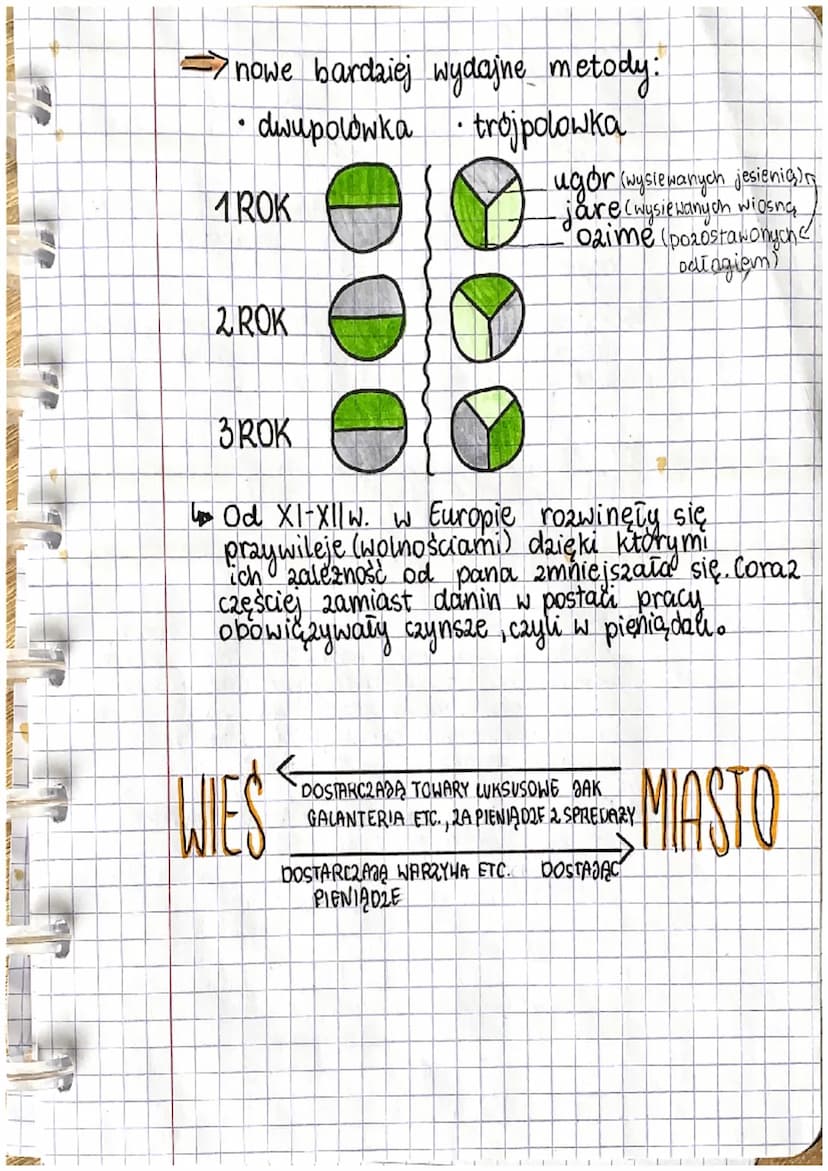 nowe bardziej wydajne metody:
· dwupolówka · trójpolowka
1 ROK
ugór (wysiewanych jesienią)
jare (wysiewanych wiosną
ozime (pozostawonych
odłogiem)
2 ROK
3 ROK
Od XI-XII w. w Europie rozwinęły się
przywileje (wolnościami) dzięki którymi
ich zależność od pana zmniejszała się. Coraz
częściej zamiast danin w postaci pracy
obowiązywały czynsze, czyli w pieniądzach.
WIEŚ
DOSTARCZAJĄ TOWARY LUKSUSOWE JAK
GALANTERIA ETC., ZA PIENIĄDZE Z SPREDAŻY
MIASTO
DOSTARCZAJĄ WARZYWA ETC. DOSTAJĄC
PIENIĄDZE